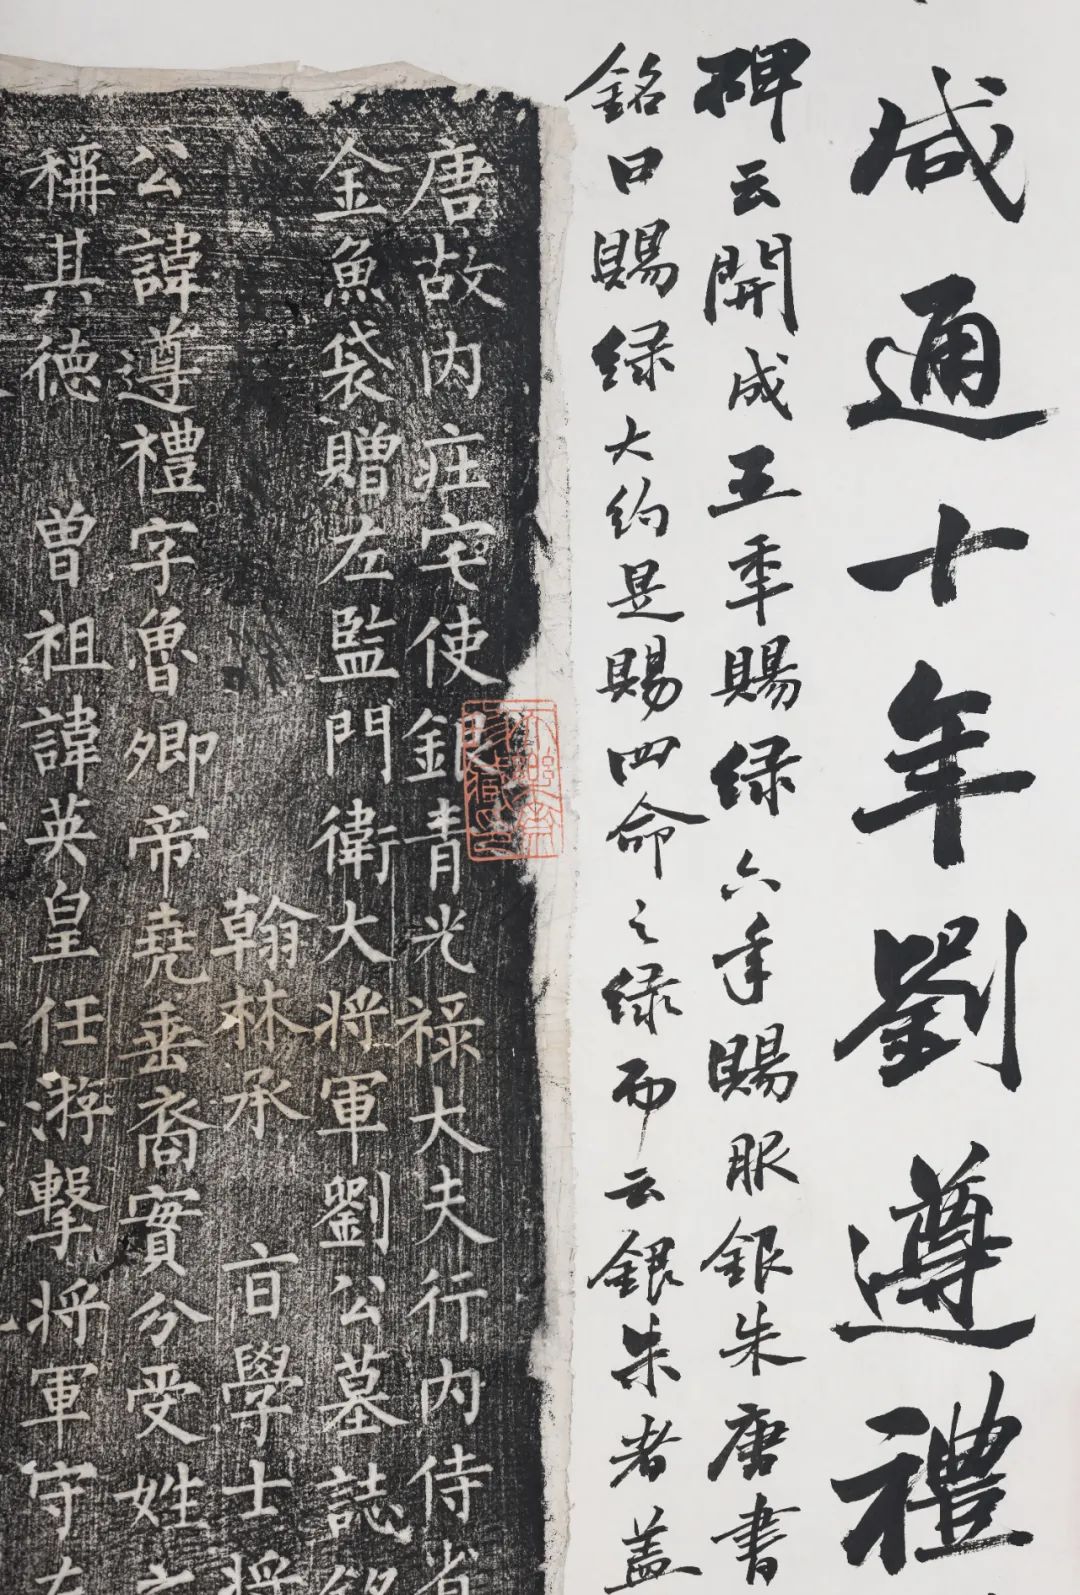 咸通十年劉遵禮
碑云開成五年賜緑六年賜服銀朱唐書
銘曰賜緑大約是賜四命之緑而云銀朱者蓋
唐故内莊宅使銀青光禄大夫行内侍省
金魚袋贈左監門衛大將軍劉公墓誌銘
翰林承㫖學士將
公諱遵禮字魯卿帝堯垂裔實分受姓
稱其徳 曾祖諱英皇任游擊將軍守左